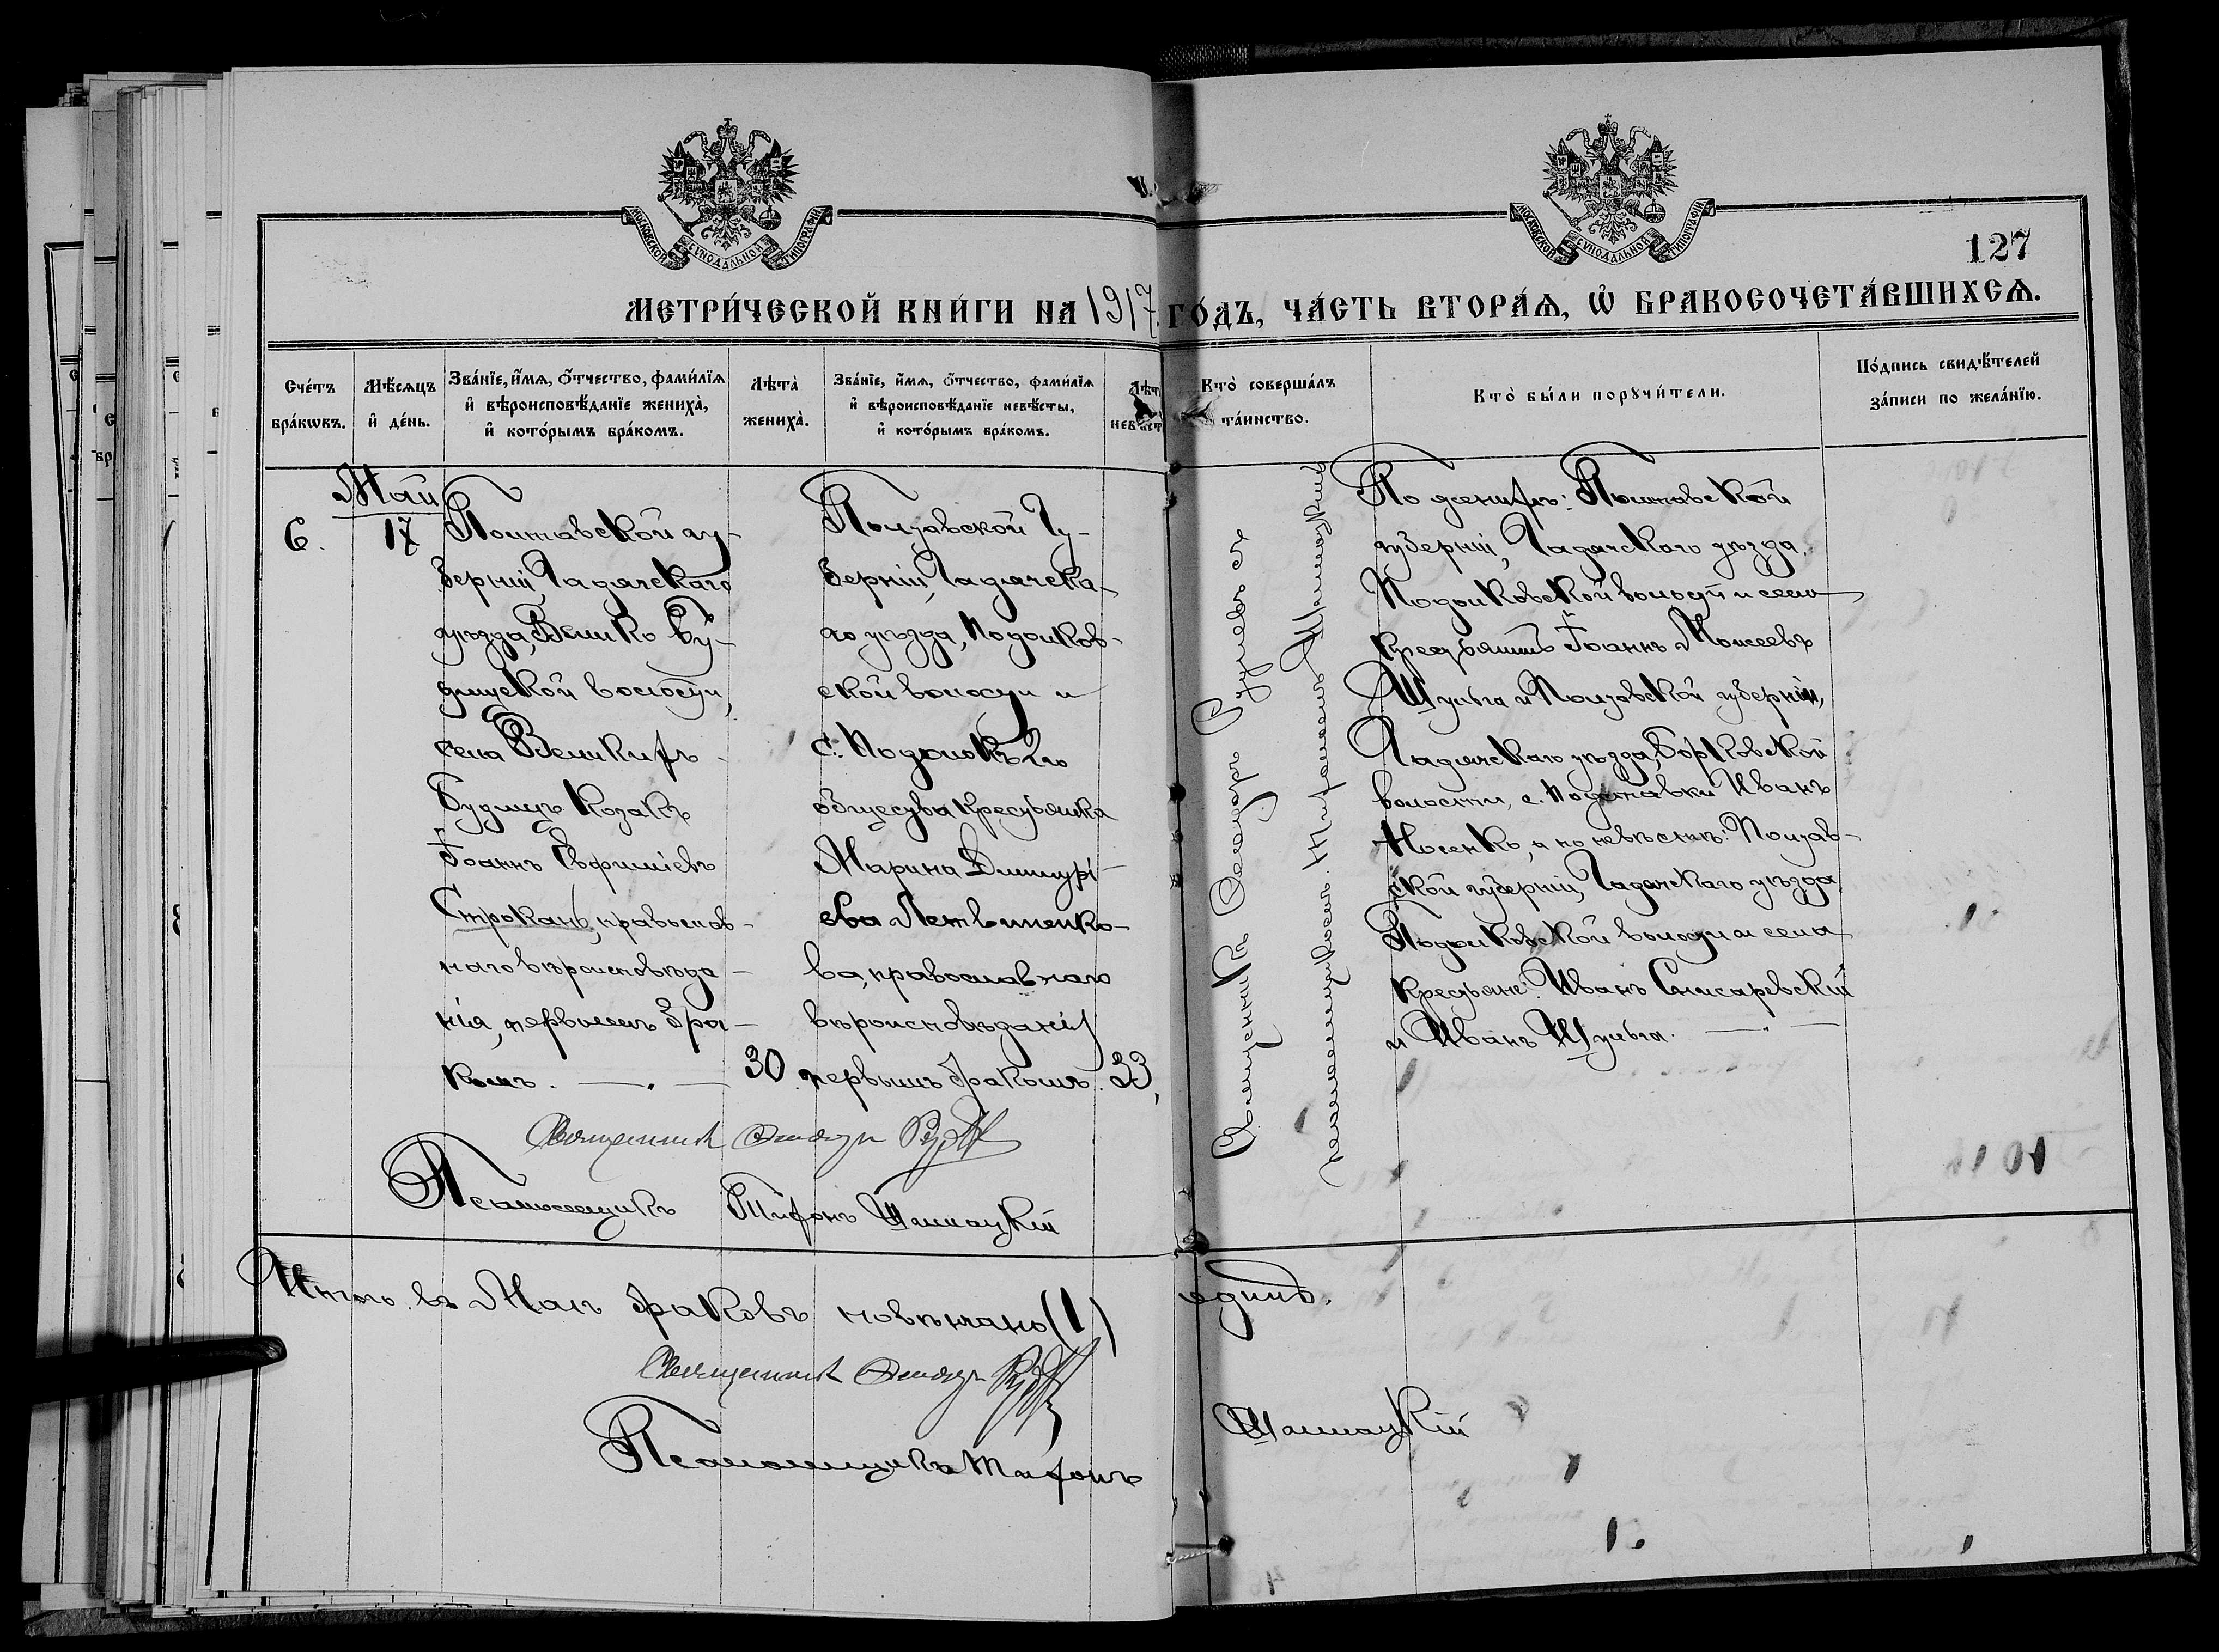 МОСКОВСКОЙ СѴНОДАЛЬНОЙ ТИПОГРАФІИ
МОСКОВСКОЙ СѴНОДАЛЬНОЙ ТИПОГРАФІИ
127
МЕТРИ́ЧЕСКОЙ КНИ́ГИ НА 1917 ГО́ДЪ, ЧА́СТЬ ВТОРА́Ѧ, Ѽ БРАКОСОЧЕТА́ВШИХСѦ.
Сче́тъ бра́кѡвъ.
Мѣ́сяцъ и҆ де́нь.
Зва́нїе, и҆́мѧ, ѻ҆́тчество, фами́лїѧ и҆ вѣроисповѣ́данїе жениха̀, и҆ кото́рымъ бра́комъ.
Лѣта̀ жениха̀.
Зва́нїе, и҆́мѧ, ѻ҆́тчество, фами́лїѧ и҆ вѣроисповѣ́данїе невѣ́сты, и҆ кото́рымъ бра́комъ.
Кто̀ соверша́лъ та́инство.
Кто̀ бы́ли порꙋчи́тели.
По́дпись свидѣ́телей за́писи по жела́нїю.
6.
Май
17
Полтавской гу-
берніи, Гадячскаго
уѣзда, Велико Бу-
дищской волости,
села Великихъ
Будищъ козакъ
Іоаннъ Евфиміевъ
Строкань, православ-
наго вѣроисповѣда-
нія, первымъ бра-
комъ.
30
Полтавской Гу-
берніи, Гадячска-
го уѣзда, Подолков-
ской волости и
с. Подолокъ
общества крестьянка
Марина Димитрі-
ева Летвиненко-
ва, православнаго
вѣроисповѣданія
первымъ бракомъ.
33,
Священникъ Ѳеодоръ
псаломщикомъ Тифономъ
По женихѣ: Полтавской
губерніи, Гадячскаго уѣзда,
Подолковской волости и села
крестьянинъ Іоаннъ Моисеевъ
Шульга и Полтавской губерніи,
Гадячскаго уѣзда, Борковской
волости, с. Подставки Иванъ
Носенко, а по невѣстѣ: Полтав-
ской губерніи, Гадячскаго уѣзда
Подолковской волости и села
крестьяне: Иванъ Снисаревскій
и Иванъ Шульга.
Священникъ Ѳеодоръ
Псаломщикъ Тифонъ
Итого въ Маѣ браковъ повѣнчано (1) одинъ.
Священникъ Ѳеодоръ
Псаломщикъ Тифонъ